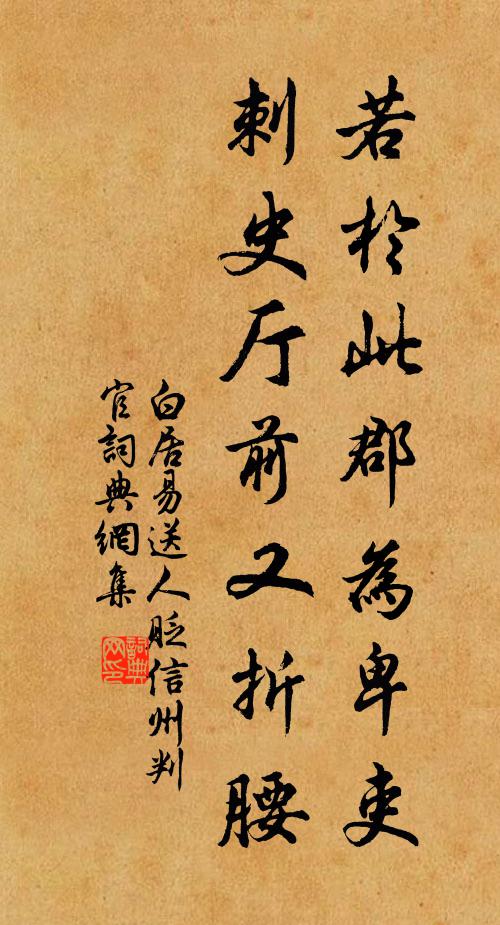 若於此郡為卑吏
刺史厅前又折腰
白居易送人贬信州判
官詞典網集
詞典网印